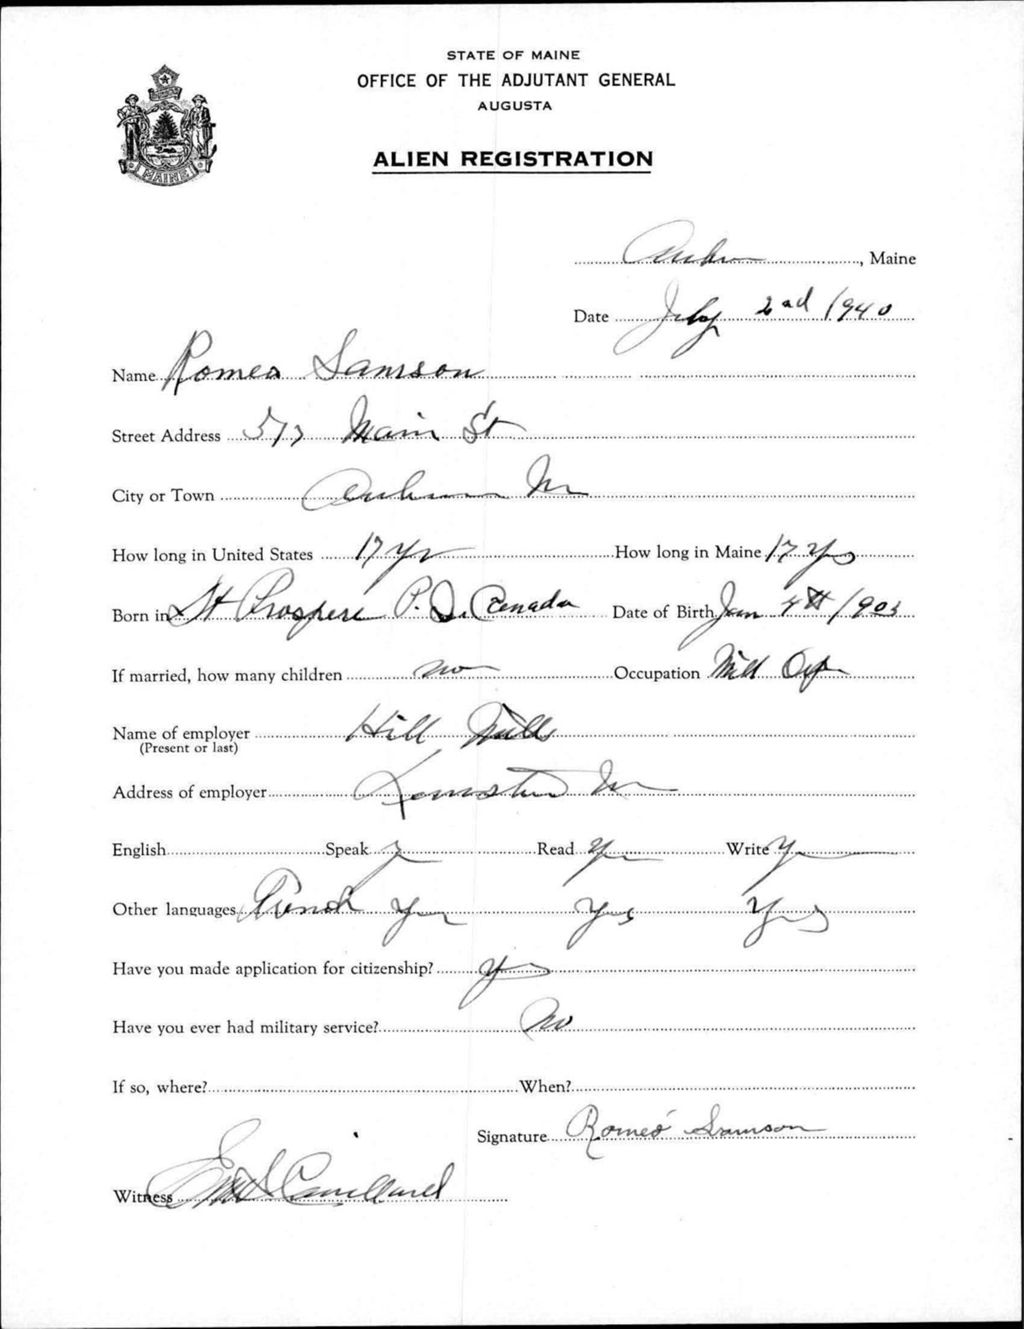 STATE OF MAINE
OFFICE OF THE ADJUTANT GENERAL
AUGUSTA
MAINE
ALIEN REGISTRATION
Auburn, Maine
Date July 2nd 1940
Name Romeo Samson
Street Address Main St
City or Town Auburn Me
How long in United States 17 Yr How long in Maine 17 Yrs
Born in St Prospere P. Q. Canada Date of Birth Jan 4th 1903
If married, how many children no Occupation Mill Op
Name of employer Hill Mills
(Present or last)
Address of employer Lewiston Me
English Speak Yes Read Yes Write Yes
Other languages French Yes Yes Yes
Have you made application for citizenship? Yes
Have you ever had military service? No
If so, where? When?
Signature Roméo Samson
Witness